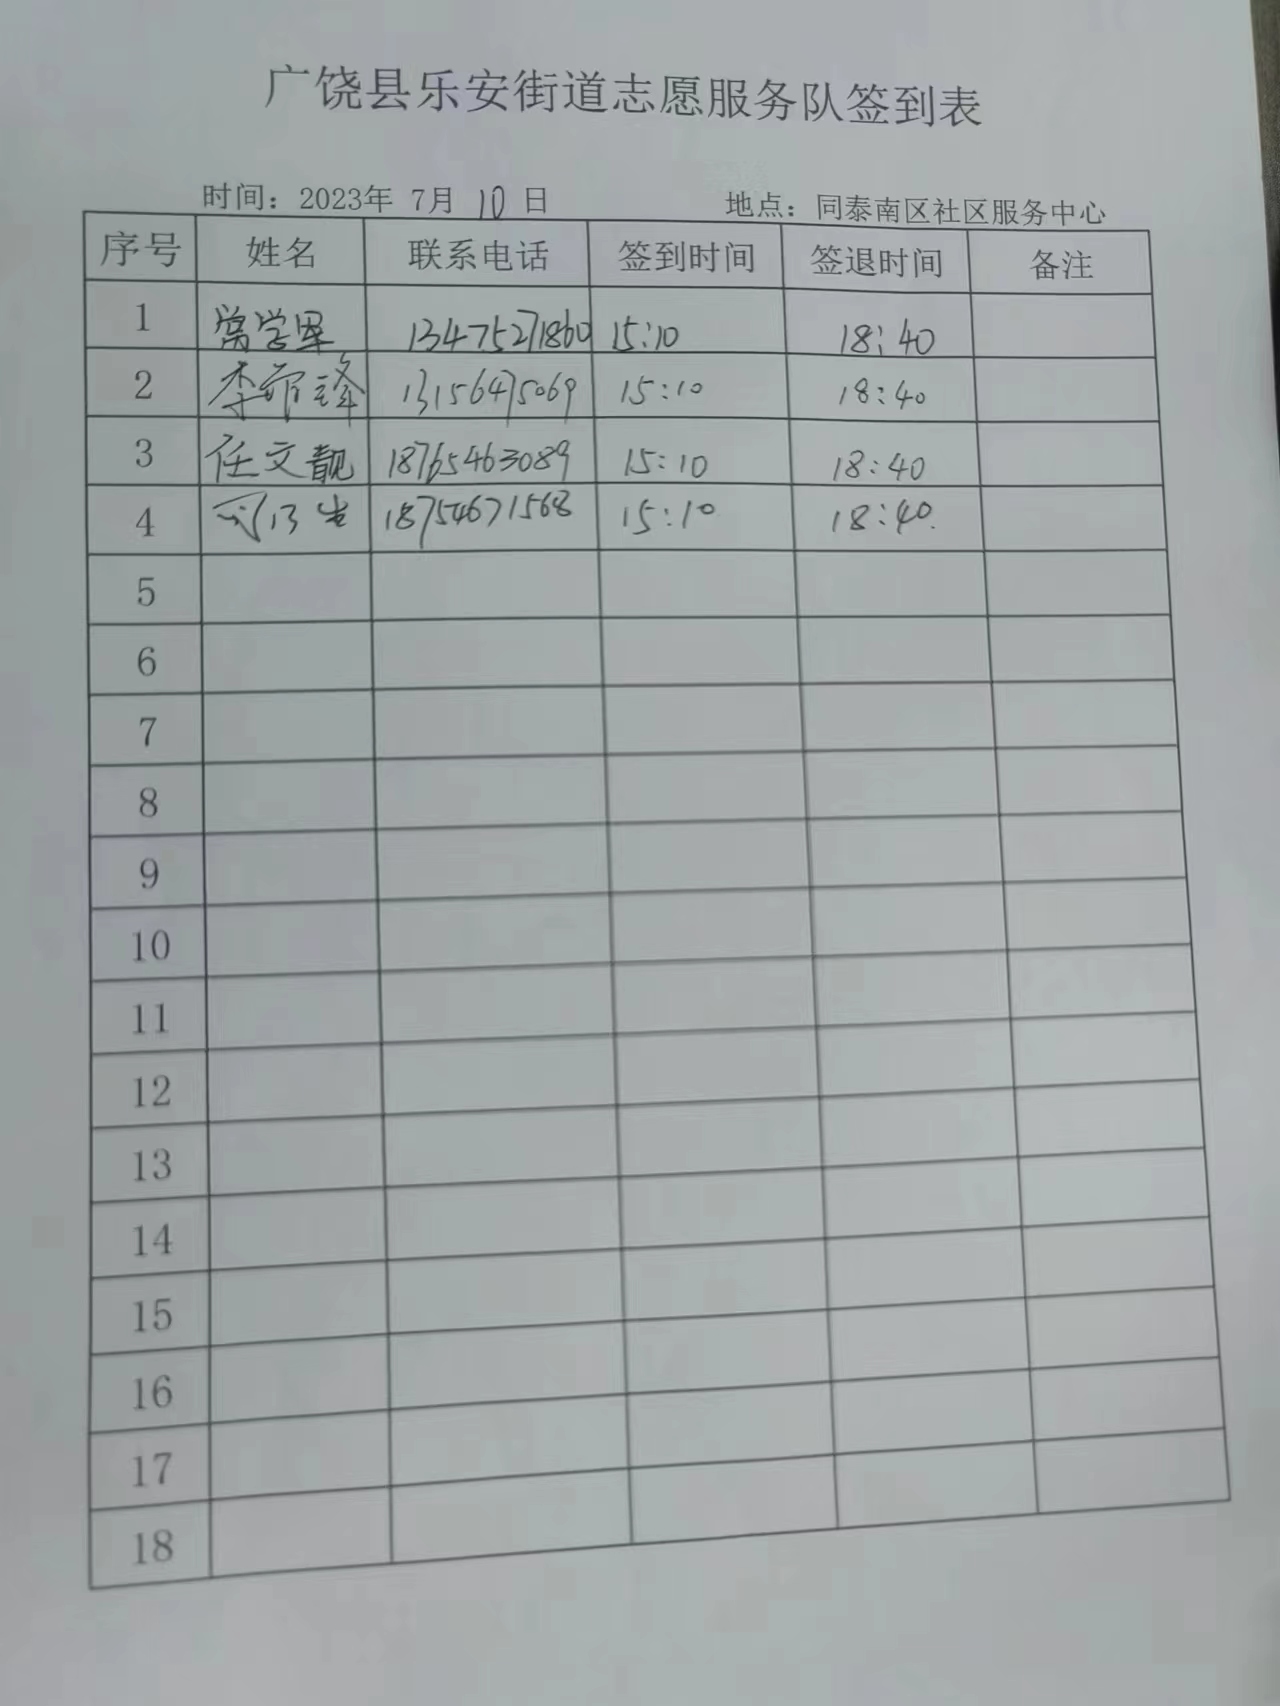 广饶县乐安街道志愿服务队签到表
时间：2023年 7月 10 日 地点：同泰南区社区服务中心
序号 姓名 联系电话 签到时间 签退时间 备注
1 13475271860 15:10 18:40
2 李 锋 13156475069 15:10 18:40
3 任文靓 18765463089 15:10 18:40
4 18754671568 15:10 18:40
5
6
7
8
9
10
11
12
13
14
15
16
17
18